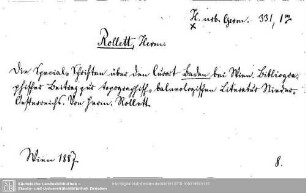 H. urb. Germ. 331, 17
Rollett, Herm.
Die Special-Schriften über den Curort Baden bei Wien. Bibliogra-
phischer Beitrag zur topographisch-balneologischen Literatur Nieder-
Oesterreichs. Von Herm. Rollett
Wien 1887.
8.
Sächsische Landesbibliothek -
Staats- und Universitätsbibliothek Dresden